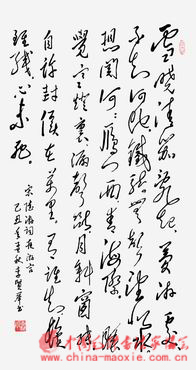 雪晓清笳乱起梦游处
不知何地铁骑无声望似水
想关河雁门西青海际睡
觉寒灯里漏声断月斜窗纸
自许封侯在万里有谁知鬓
虽残心未死
宋陆游词夜游宫
己丑年
china-maoxie.com.cn